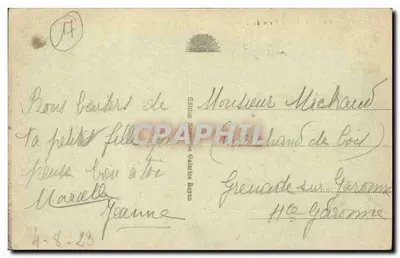 A
Bons baisers de
ta petite fille qui
pense bon à toi
Marcelle
Jeanne
4-8-23
Edition Galeries Royan
Monsieur Michaud
(Marchand de bois)
Grenade sur Garonne
Hte Garonne
CPAPHIL